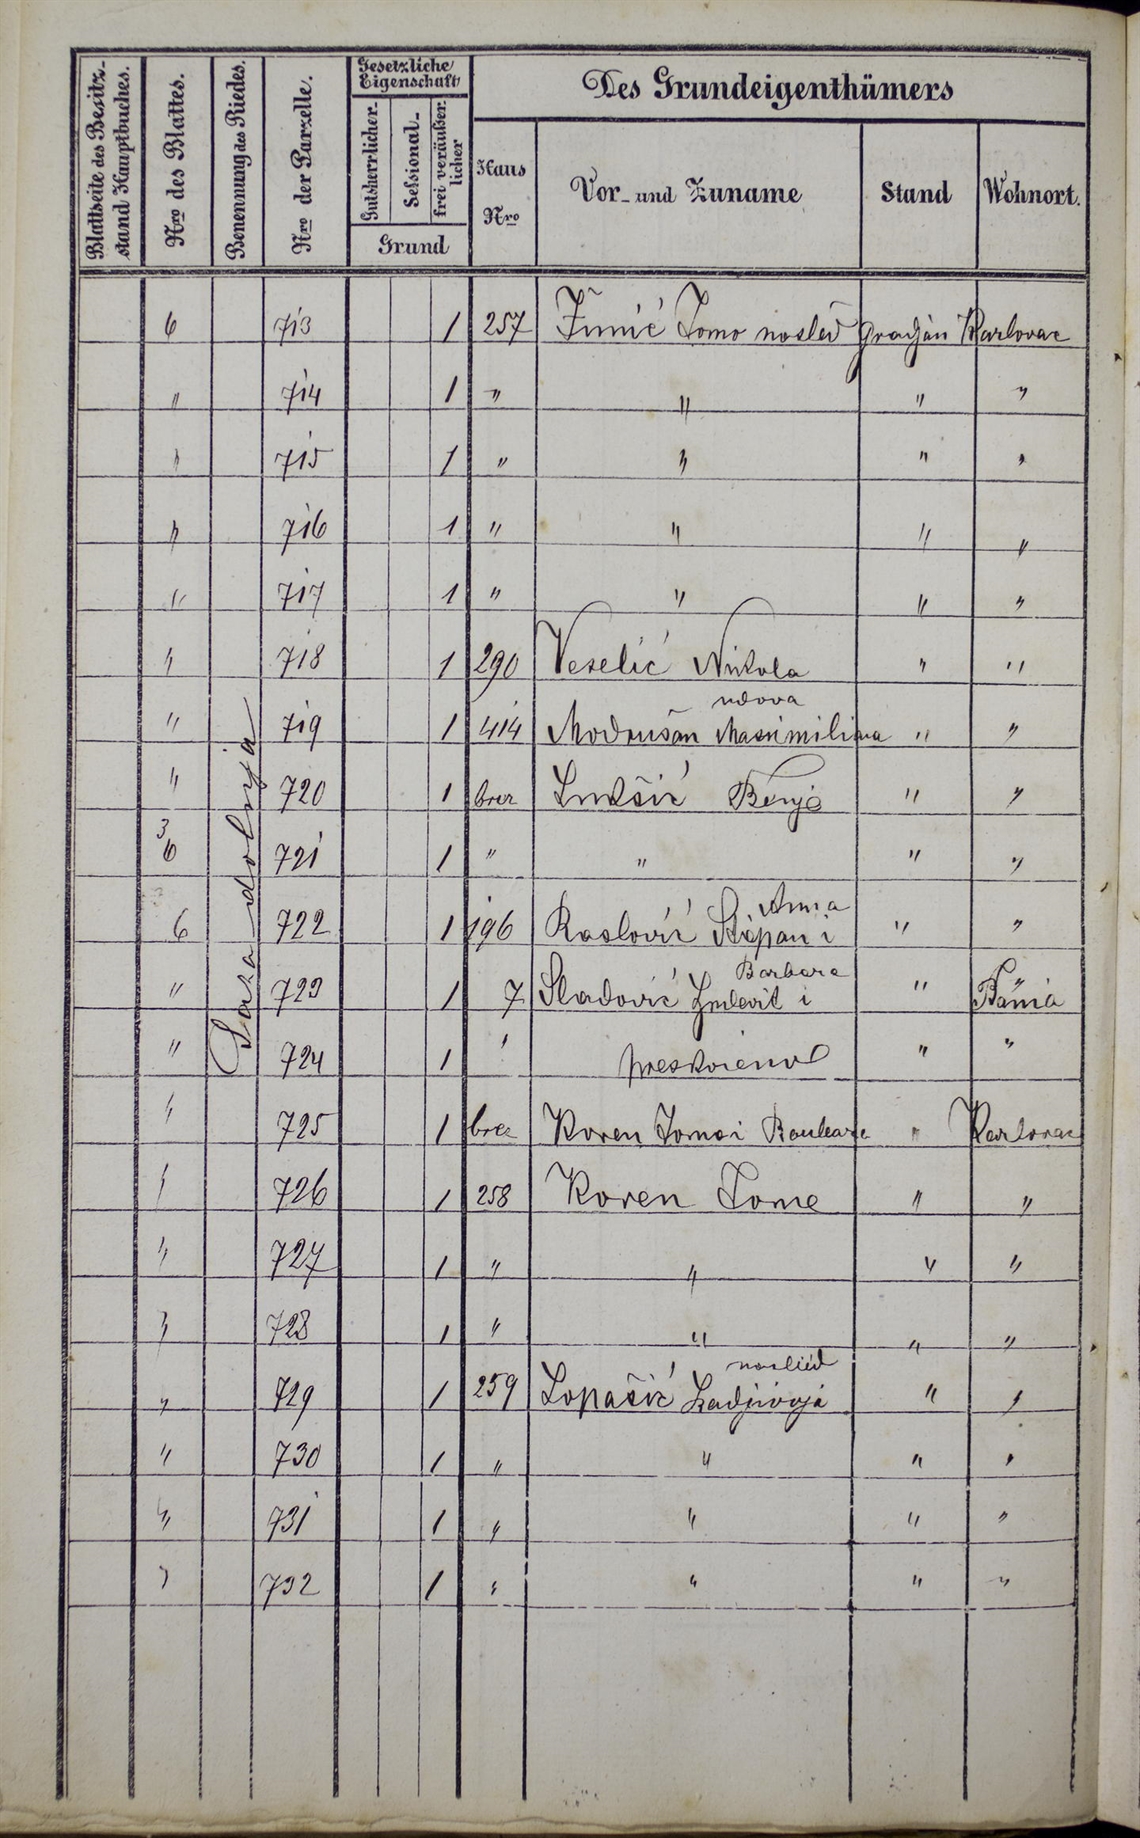 Blattseite des Besitz-stand Hauptbuches.
Nro des Blattes.
Benennung des Riedes.
Nro der Parzelle.
Gesetzliche Eigenschaft
Gutsherrlicher
Sessional-
frei veräußerlicher
Grund
Des Grundeigenthümers
Haus Nro
Vor- und Zuname
Stand
Wohnort.
Luka dolnja
6 713 1 257 Žunić Tomo nasled gradjan Karlovac
" 714 1 " " " "
" 715 1 " " " "
" 716 1 " " " "
" 717 1 " " " "
" 718 1 290 Veselić Nikola " "
udova
" 719 1 414 Modrušan Maximiliana " "
" 720 1 brez Lukšić Benjo " "
3/6 721 1 " " " "
Anna
6 722 1 196 Raslović Stjepan i " "
Barbara
" 723 1 7 Sladović Ljudevit i " Bania
" 724 1 " " "
" 725 1 brez Koren Toma i " Karlovac
" 726 1 258 Koren Tome " "
" 727 1 " " " "
" 728 1 " " " "
naslied
" 729 1 259 Lopašić " "
" 730 1 " " " "
" 731 1 " " " "
" 732 1 " " " "